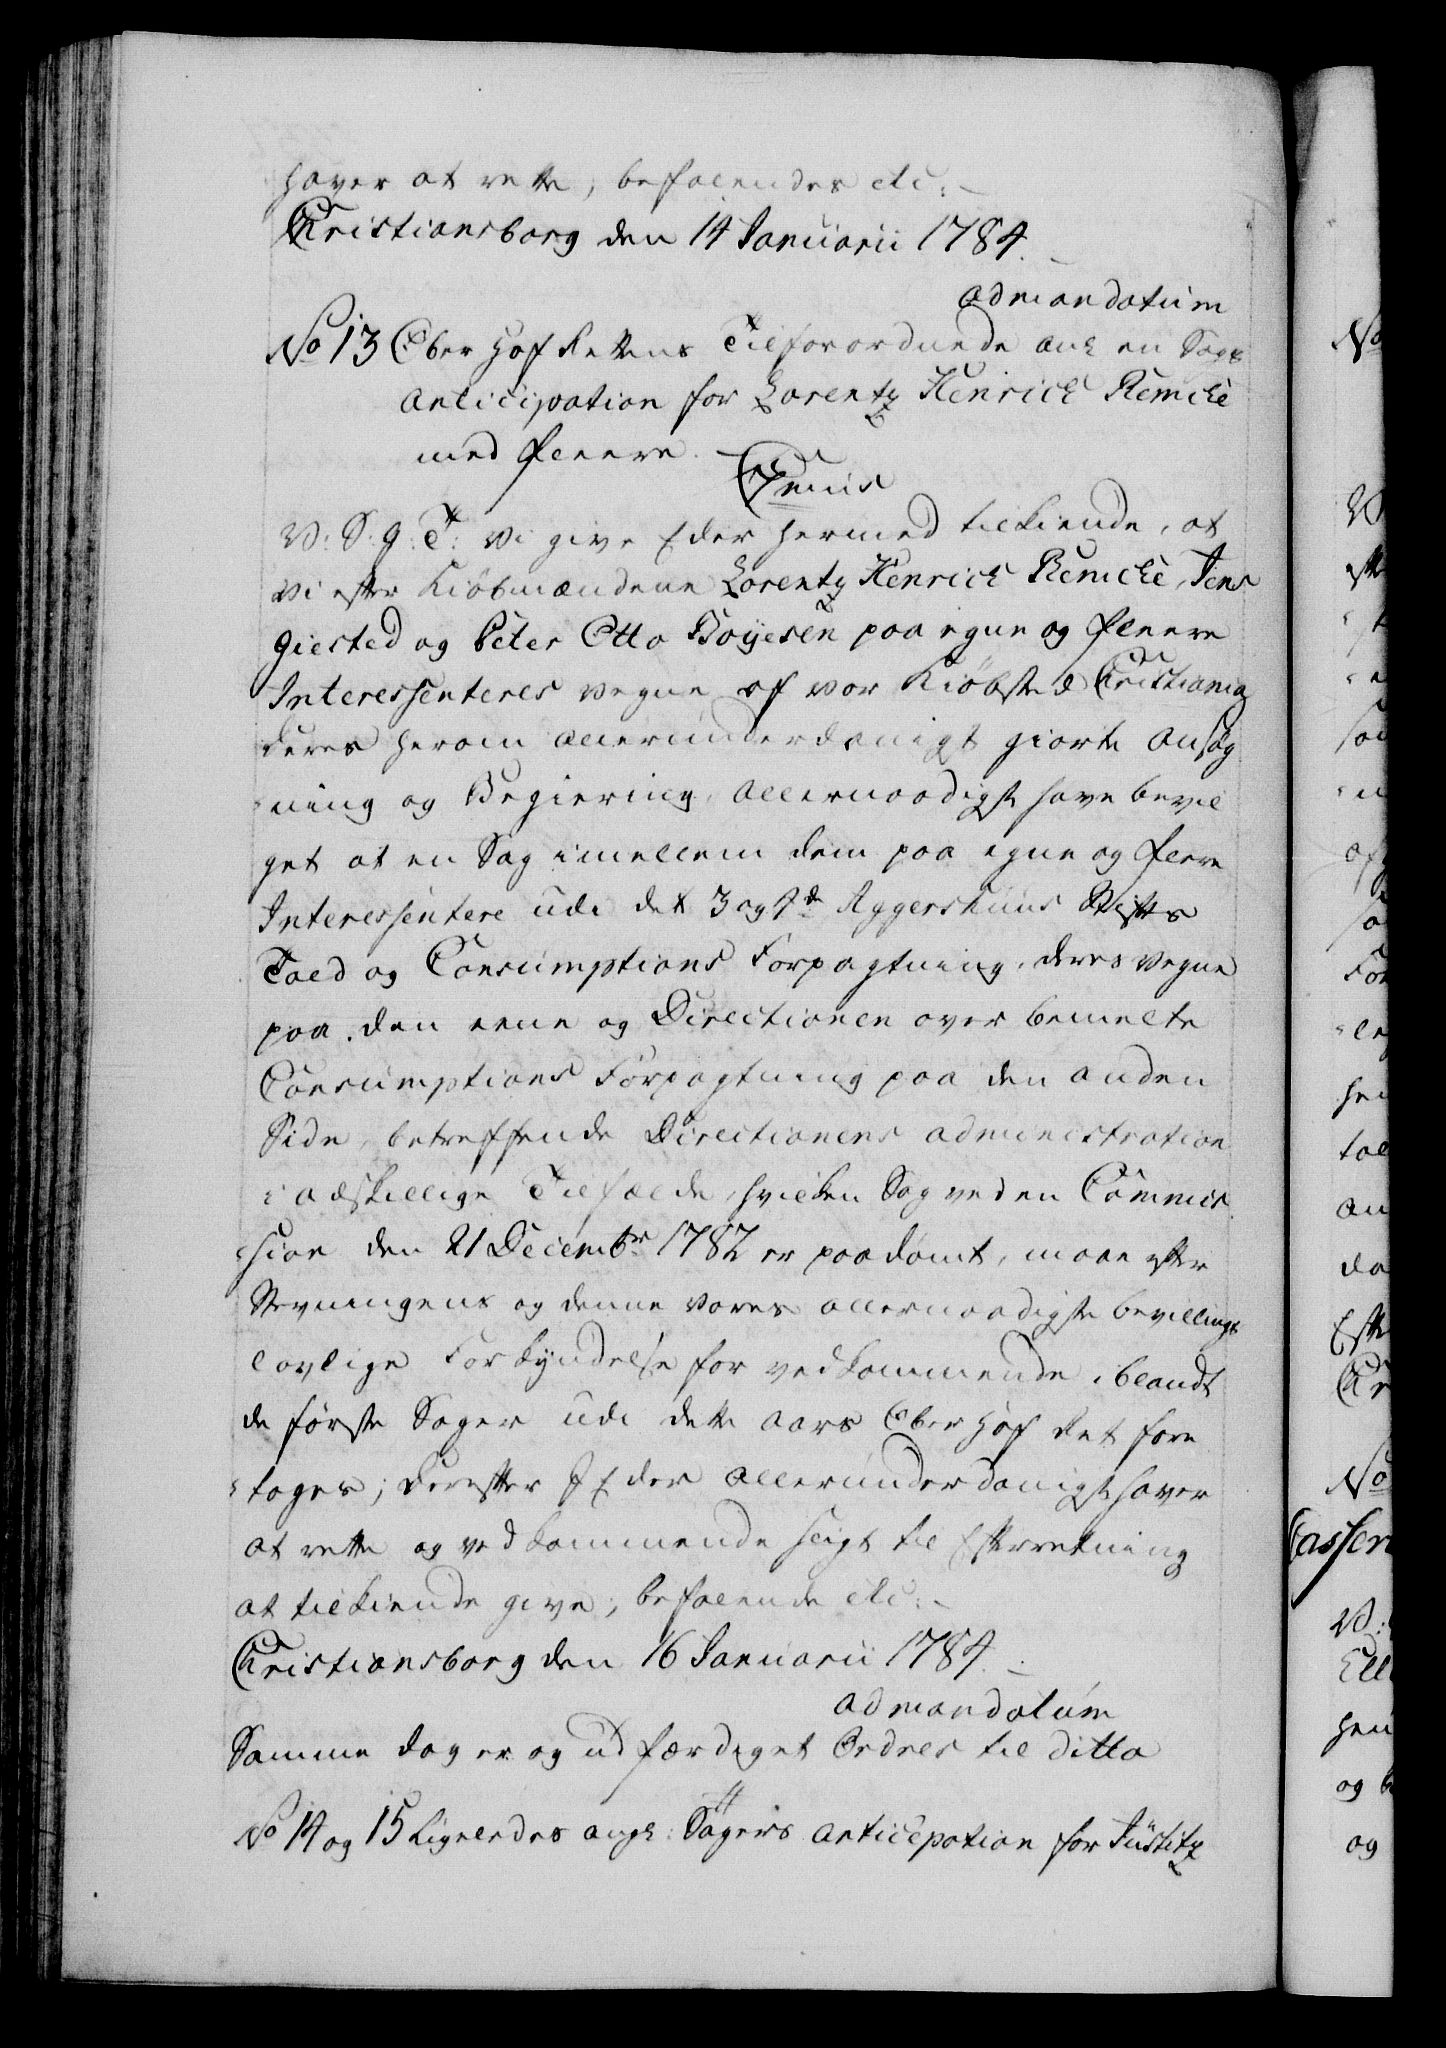 haver at rette, befalendes etc:
Christiansborg den 14 Januarii 1784.
admandatum
No 13 Ober Hof Rettens Tilforordnede ank en Sags
Anticipation for Lorentz Henrich Remcke
med fleere.
C7mus
V: S: G: T: Vi give Eder hermed tilkiende, at
vi efter Kiöbmændene Lorentz Henrich Remcke, Jens
Giested og Peter Otto Boyesen paa egne og fleere
Interessenteres vegne af vor Kiöbsted Christiania
deres herom allerunderdanigst giorte Ansøg
-ning og Begiering, allernaadigst have bevil
get at en Sag imellem dem paa egne og fleere
Interessentere udi det 3 og 4de Aggershuus Stifts
Told og Consumptions Forpagtning, deres vegne
paa den eene og Directionen over bemelte
Consumptions Forpagtning paa den anden
Side, betreffende Directionens administration
i adskillige Tilfælde, hvilken Sag ved en Commis
-sion den 21 Decembr 1782 er paadömt, maae efter
Stevningens og denne vores allernaadigste bevillings
lovlige Forkyndelse for vedkommende iblandt
de første Sager udi dette Aars Ober Hof Ret fore
-tages; derefter I Eder allerunderdanigst haver
at rette og vedkommende sligt til Efterretning
at tilkiende give, befalende etc:
Christiansborg den 16 Januarii 1784.
admandatum
Samme dag er og udfærdiget Ordres til ditto
No 14 og 15 Lignendes angl: Sagers anticipation for Justitz